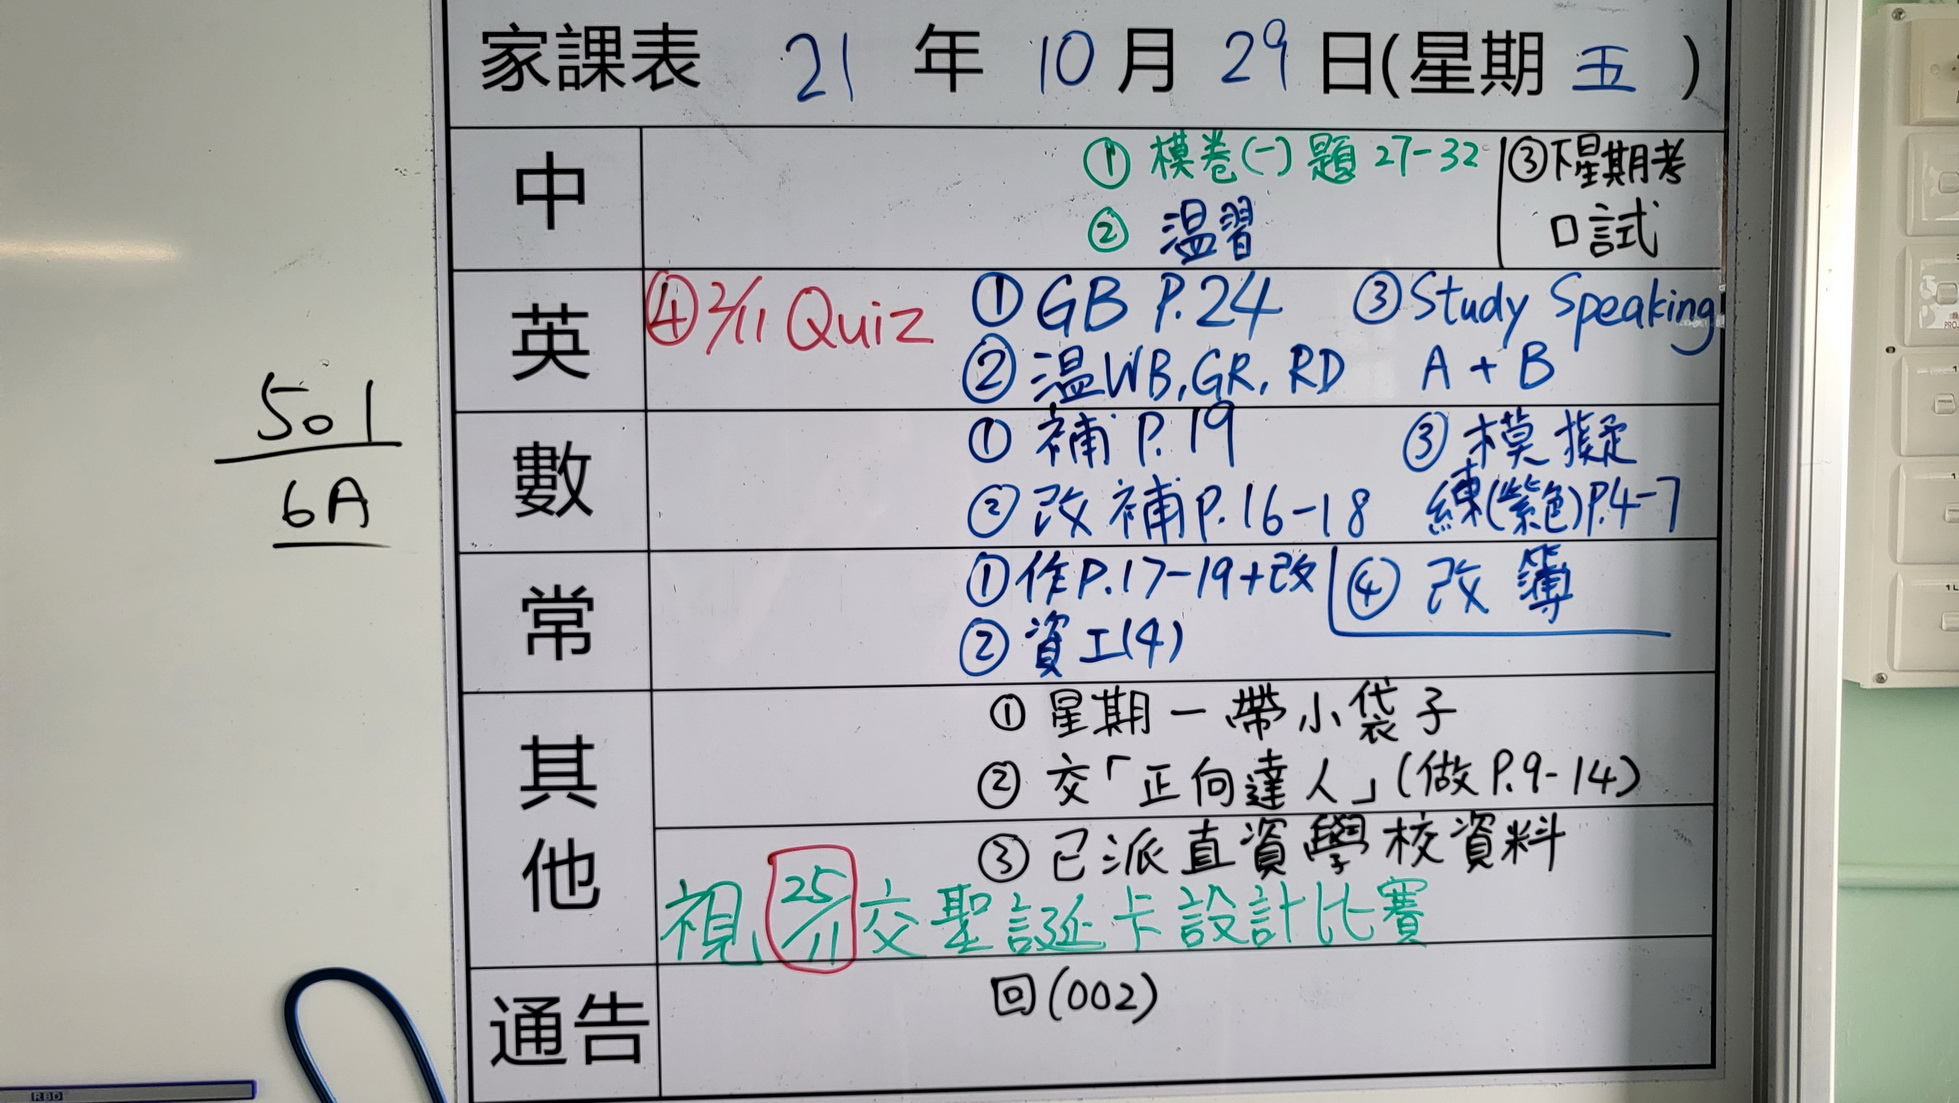 家課表 21 年 10 月 29 日(星期 五 )
中
① 模卷(一) 題 27-32
② 温習
③下星期考
口試
英
④ 2/11 Quiz
① GB P.24
② 温WB, GR, RD
③ Study Speaking
A + B
數
① 補 P.19
② 改補 P.16-18
③ 模擬
練(紫色)P.4-7
常
① 作P.17-19+改
② 資工(4)
④ 改簿
其他
① 星期一帶小袋子
② 交「正向達人」(做P.9-14)
③ 已派直資學校資料
視 25/11 交聖誕卡設計比賽
通告
回(002)
501
6A
RBD